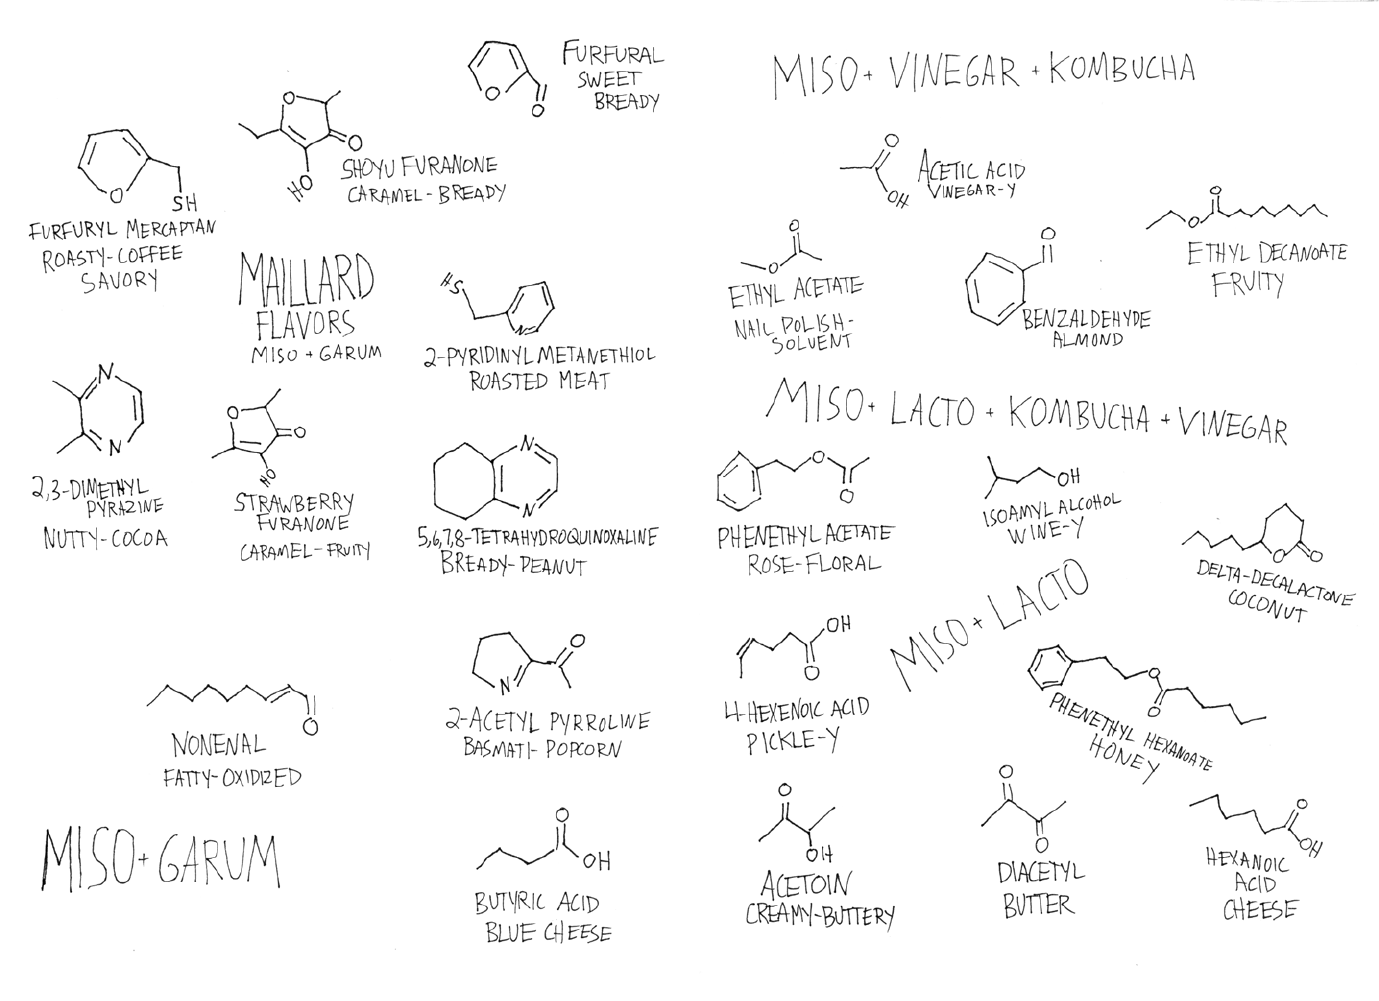 FURFURAL
SWEET
BREADY
O
O
O
O
HO
SHOYU FURANONE
CARAMEL-BREADY
O
SH
FURFURYL MERCAPTAN
ROASTY-COFFEE
SAVORY
MAILLARD
FLAVORS
MISO + GARUM
HS
N
2-PYRIDINYLMETANETHIOL
ROASTED MEAT
N
N
2,3-DIMETHYL
PYRAZINE
NUTTY-COCOA
O
O
HO
STRAWBERRY
FURANONE
CARAMEL-FRUITY
N
N
5,6,7,8-TETRAHYDROQUINOXALINE
BREADY-PEANUT
O
NONENAL
FATTY-OXIDIZED
N
O
2-ACETYL PYRROLINE
BASMATI-POPCORN
MISO + GARUM
O
OH
BUTYRIC ACID
BLUE CHEESE
MISO + VINEGAR + KOMBUCHA
O
OH
ACETIC ACID
VINEGAR-Y
O
O
ETHYL ACETATE
NAIL POLISH-
SOLVENT
O
BENZALDEHYDE
ALMOND
O
O
ETHYL DECANOATE
FRUITY
MISO + LACTO + KOMBUCHA + VINEGAR
O
O
PHENETHYL ACETATE
ROSE-FLORAL
OH
ISOAMYL ALCOHOL
WINE-Y
O
O
DELTA-DECALACTONE
COCONUT
MISO + LACTO
OH
O
4-HEXENOIC ACID
PICKLE-Y
O
O
PHENETHYL HEXANOATE
HONEY
O
OH
ACETOIN
CREAMY-BUTTERY
O
O
DIACETYL
BUTTER
O
OH
HEXANOIC
ACID
CHEESE